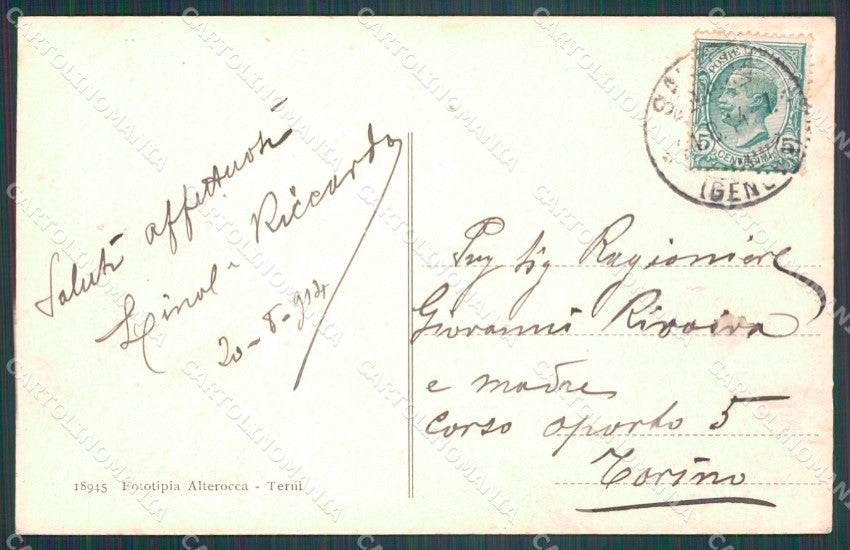 Saluti affettuosi
Riccardo
20-8-914
18945 Fototipia Alterocca - Terni
POSTE
5 5
CENTESIMI
(GENOVA)
Sig Ragioniere
Giovanni Rivoira
e madre
corso oporto 5
Torino
CARTOLINOMANIA